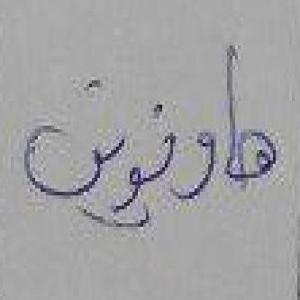 هاونوش